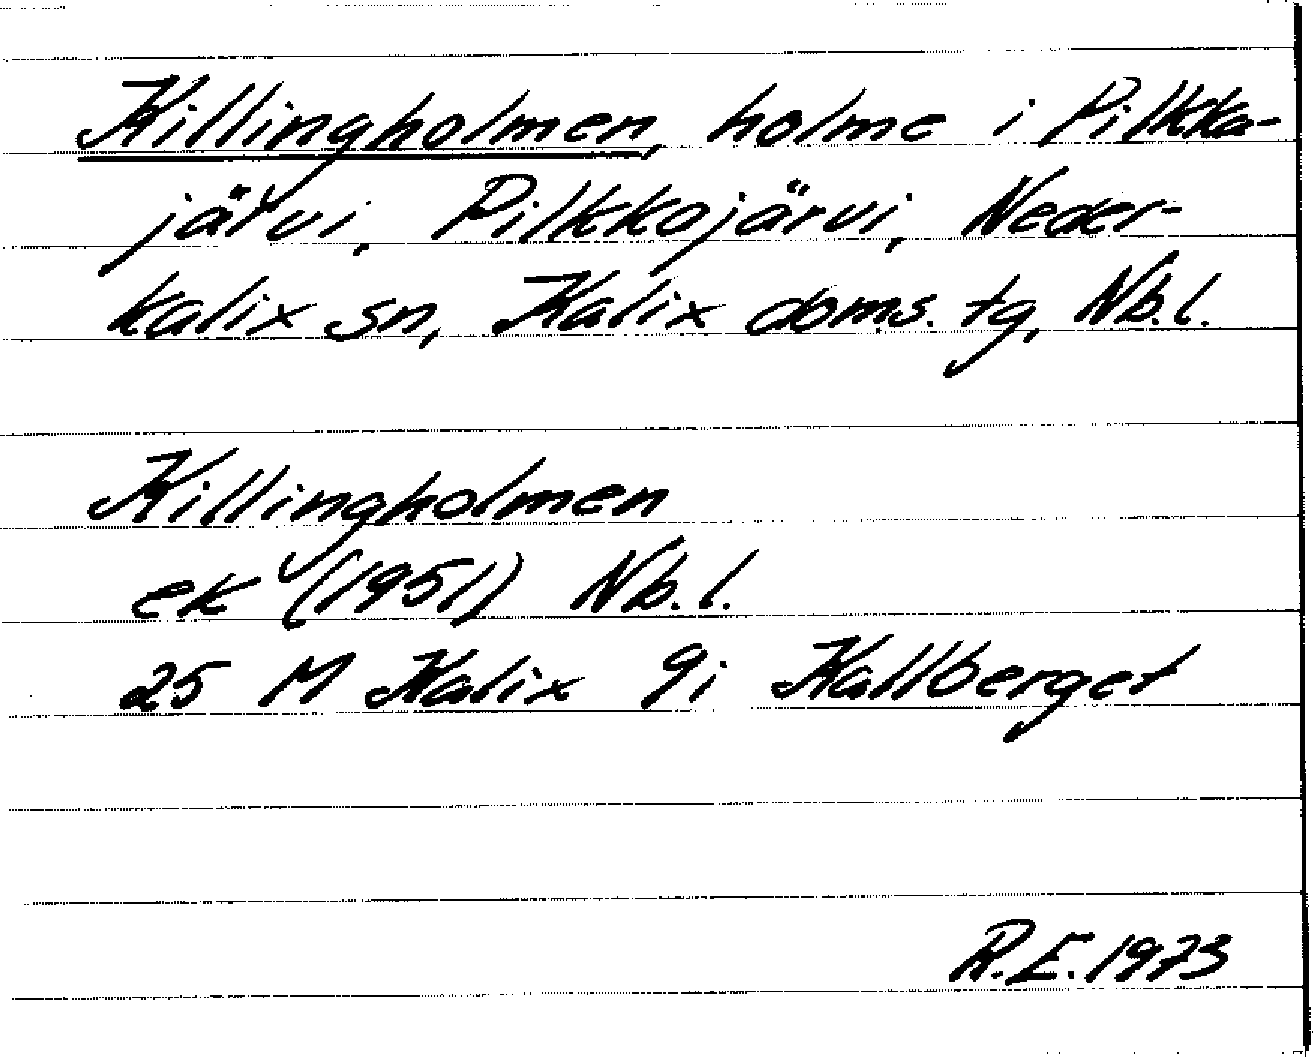 Killingholmen, holme i Pilkka-
järvi, Pilkkajärvi, Neder-
kalix sn, Kalix doms. tg, Nb.l.
Killingholmen
ek (1951) Nb.l.
25 M Kalix 9i Kallberget
R.E. 1973